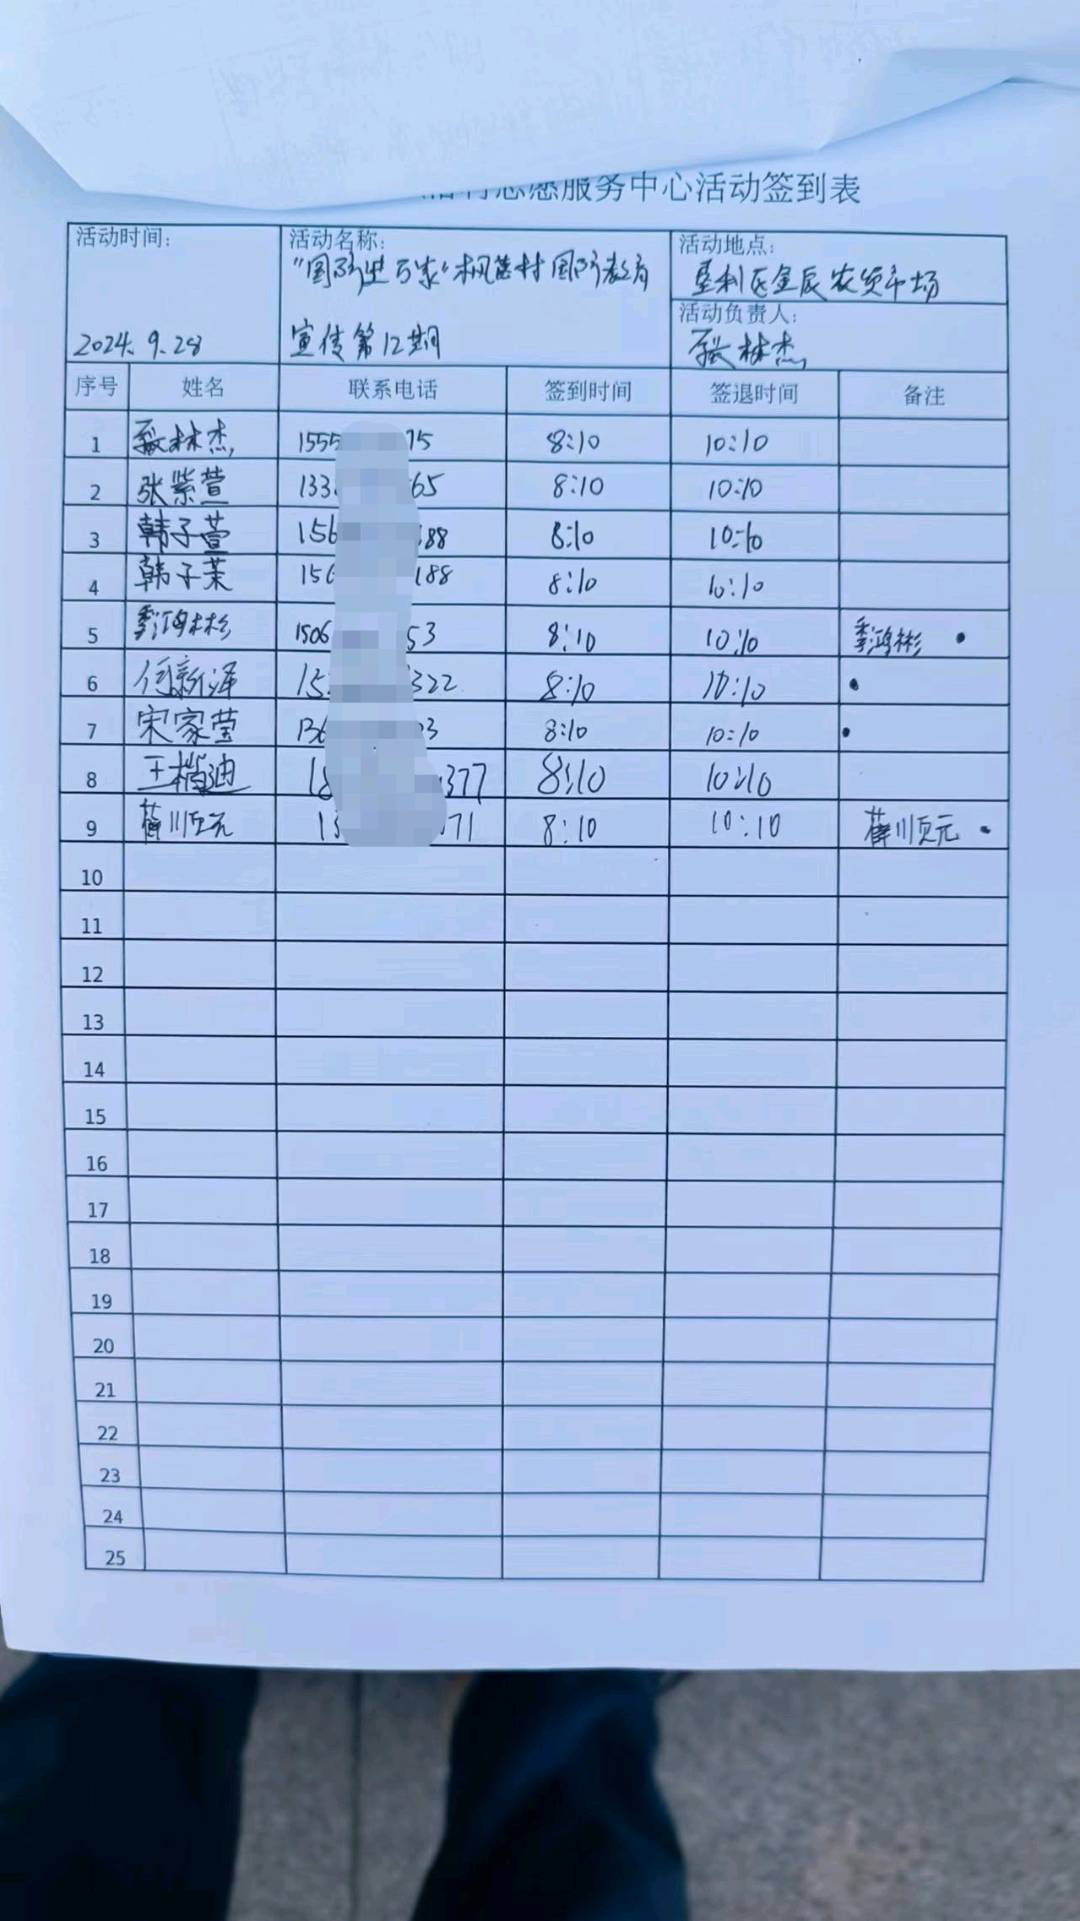 志愿服务中心活动签到表
活动时间: 2024.9.28
活动名称: "国防进万家"枫慈村国防教育
宣传第12期
活动地点: 垦利区金辰农贸市场
活动负责人: 张林杰
序号 姓名 联系电话 签到时间 签退时间 备注
1 张林杰 1555 75 8:10 10:10
2 张紫萱 133 65 8:10 10:10
3 韩子萱 156 88 8:10 10:10
4 韩子茉 156 188 8:10 10:10
5 季鸿彬 1506 53 8:10 10:10 季鸿彬
6 何新泽 15 322 8:10 10:10
7 宋家莹 136 3 8:10 10:10
8 王楷迪 18 377 8:10 10:10
9 薛川页元 13 71 8:10 10:10 薛川页元
10
11
12
13
14
15
16
17
18
19
20
21
22
23
24
25